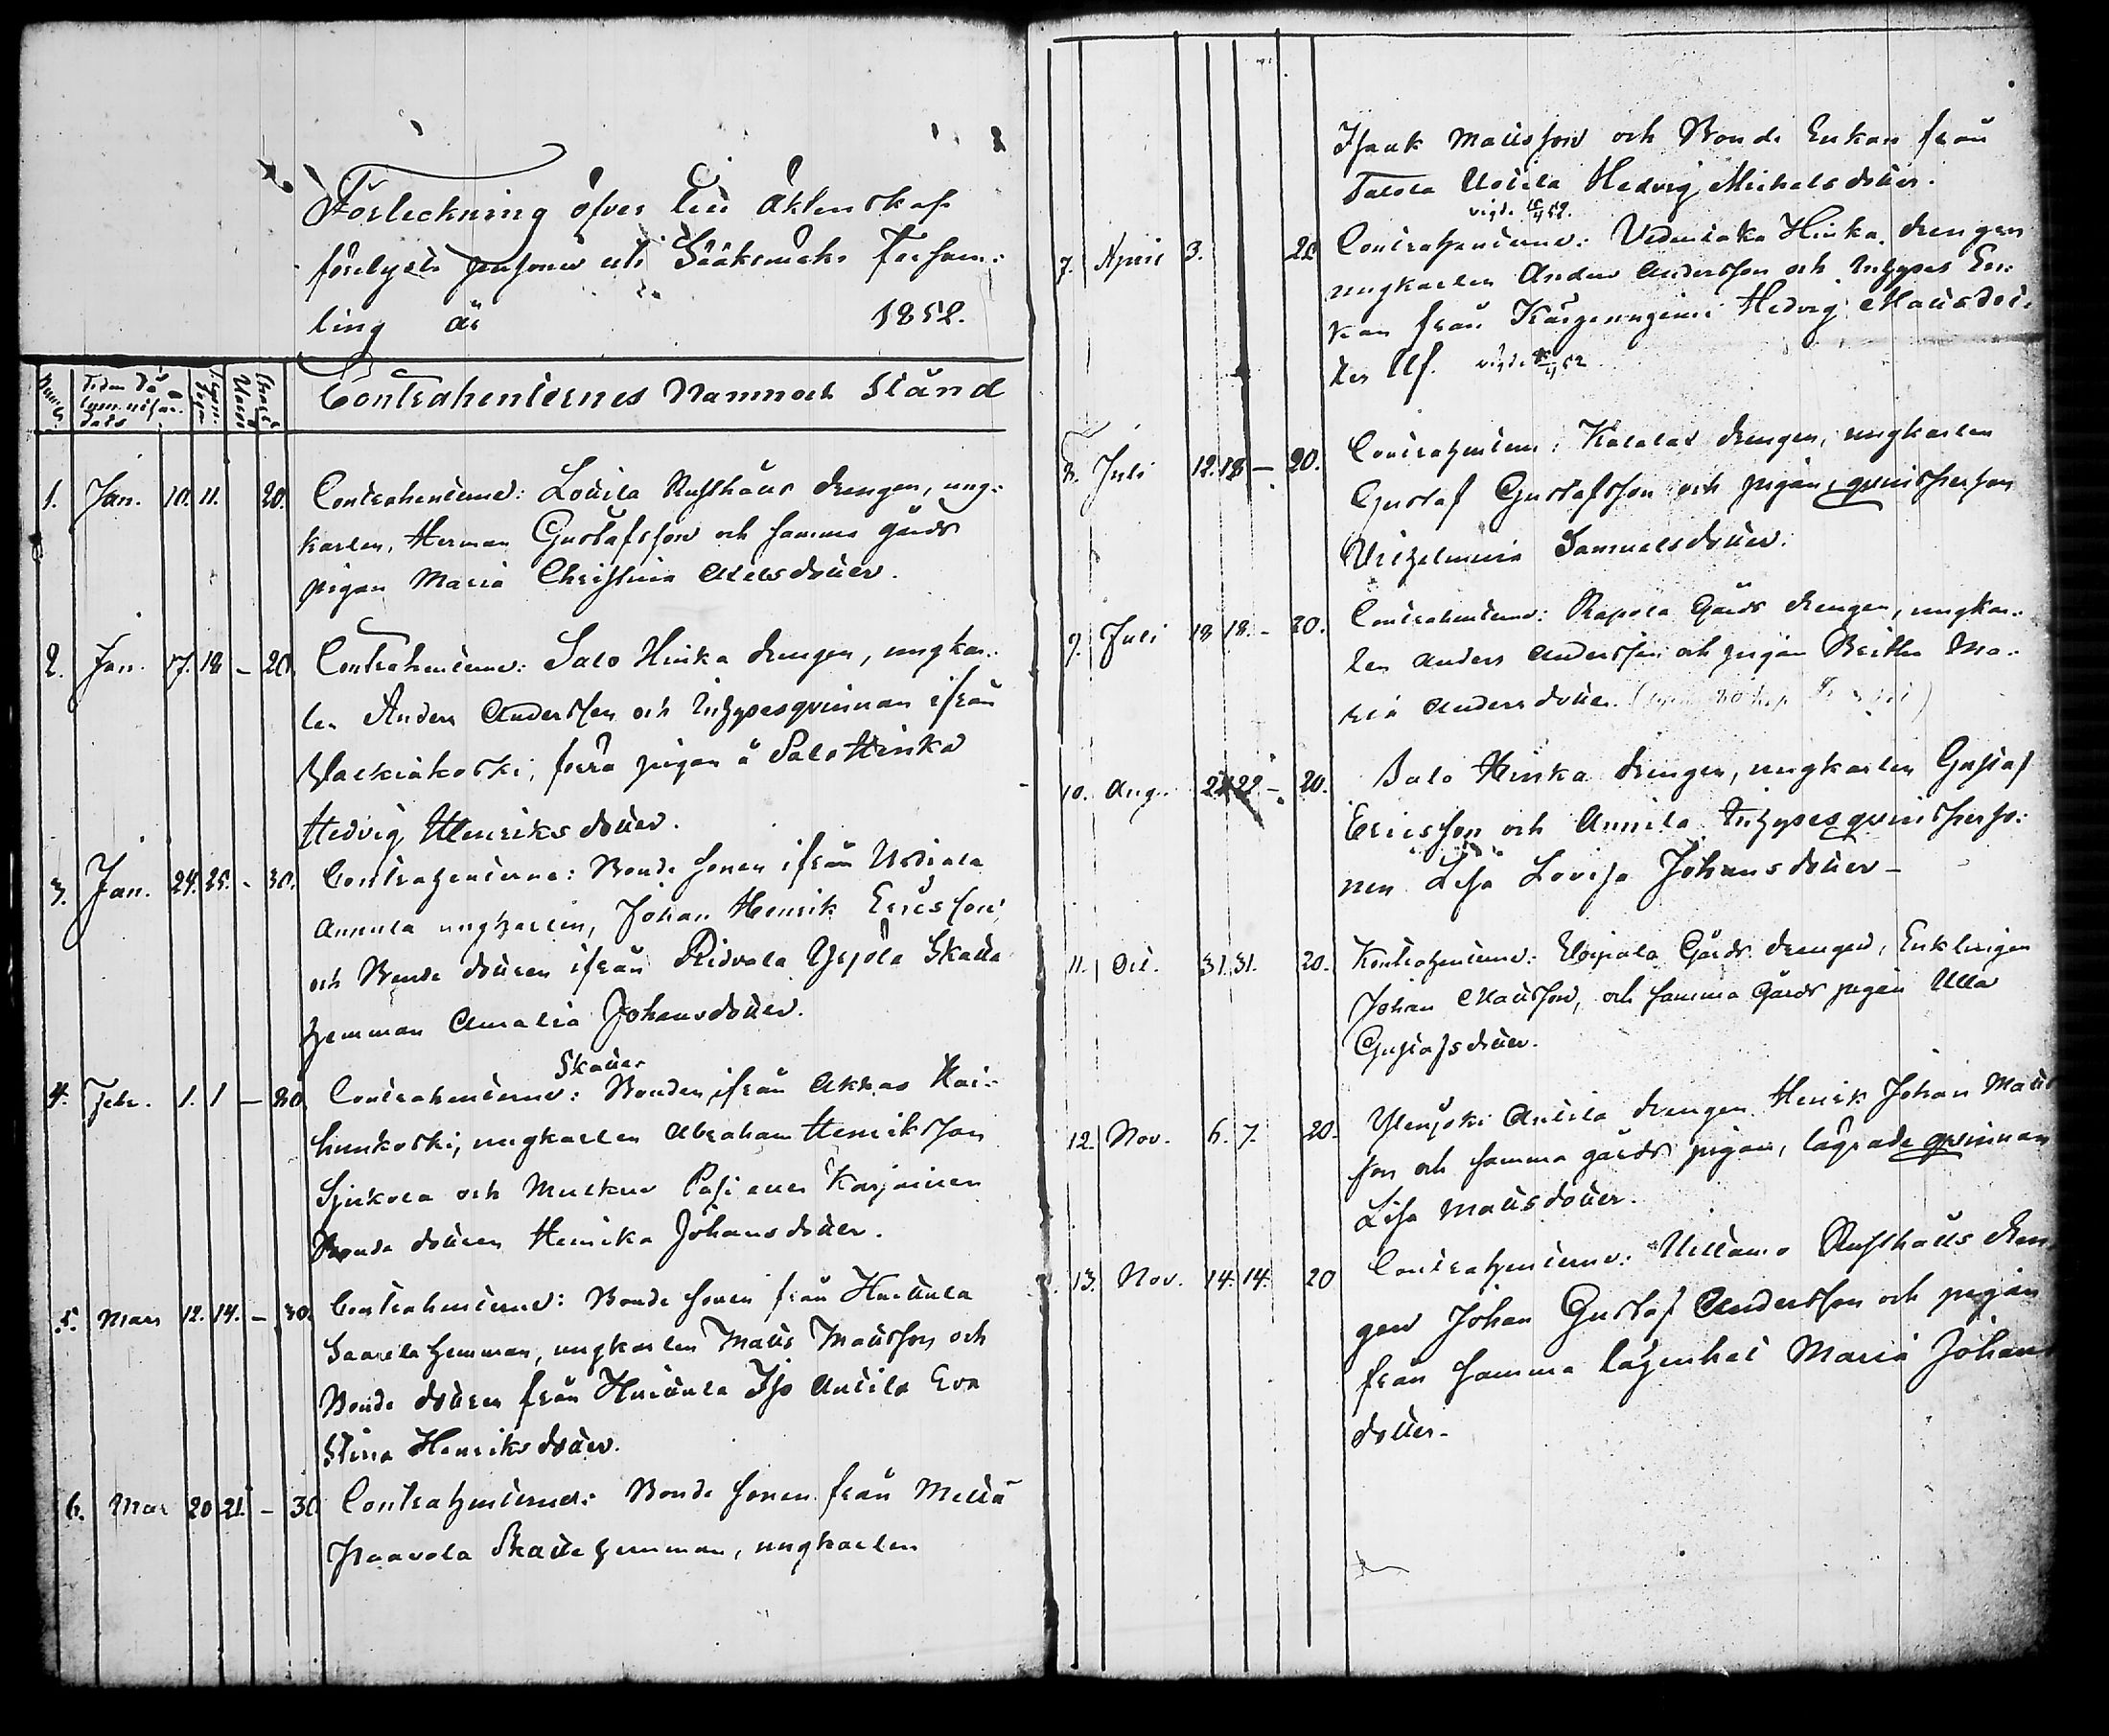 Förteckning öfver till Äktenskap
förelyste personer uti Sääksmäki Försam-
ling år 1852.
Contrahenternes Namn och Stånd
1. Jan. 10. 11. 20. Contrahenterne: Rusthålls drengen, ung-
karlen, Herman Gustafsson och samma gårds
pigan Maria Christina Axelsdotter.
2. Jan. 17. 18 – 20. Contrahenterne: Salo Hinka drengen, ungkar-
len Anders Andersson och Inhyses qvinnan ifrån
Walkiakoski, förra pigan å Salo Hinka
Hedvig Henriksdotter.
3. Jan. 24. 25. - 30. Contrahenterne: Bonde sonen ifrån Urdiala
Annula ungkarlen, Johan Henrik Ericsson,
och Bonde dottren ifrån Ridvala Yrjola Skatte
hemman Amalia Johansdotter.
Skatte
4. Febr. 1. 1 – 30 Contrahenterne: Bonden ifrån Akkas Hai-
hunkoski, ungkarlen Abraham Henriksson
och Karjainen
Bonde dottren Henrika Johansdotter.
5. Mars 12. 14. – 30. Contrahenterne: Bonde sonen från Huittula
Saarela hemman, ungkarlen Matts Mattsson och
Bonde dottren från Huittula Iso Anttila Eva
Stina Henriksdotter.
6. Mar 20 21. – 30. Contrahenterne: Bonde sonen från Metsä
Paavola Skatte hemman, ungkarlen
Isaak Mattsson och Bonde Enkan från
Tarttila Uotila Hedvig Michelsdotter.
7. April 3. 20 Contrahenterne: Hinka drengen
ungkarlen Anders Andersson och Inhyses En-
kan från Kärjenniemi Hedvig Mattsdot-
ter Ulf.
8. Juli 12. 18 – 20. Contrahenterne: drengen, ungkarlen
Gustaf Gustafsson och pigan, qvinspersson
Wilhelmina Samuelsdotter.
9. Juli 18 18. – 20. Contrahenterne: Rapola Gårds drengen, ungkar-
len Anders Andersson och pigan Britha Ma-
ria Andersdotter.
10. Aug. 22 – 20. Salo Hinka drengen, ungkarlen Gustaf
Ericsson och Annila Inhyses qvinsperso-
nen Lisa Lovisa Johansdotter –
11. Oct. 31. 31. 20. Kontrahenterne: Woipala Gårds drengen, Enklingen
Johan Mattsson, och samma Gårds pigan Ulla
Gustafsdotter.
12. Nov. 6. 7. 20. Anttila drengen Henrik Johan Matts-
son och samma gårds pigan, lägrade qvinnan
Lisa Mattsdotter.
13. Nov. 14. 14. 20 Contrahenterne: Uittamo Rusthålls dren-
gen Johan Gustaf Andersson och pigan
från samma lägenhet Maria Johans
dotter –